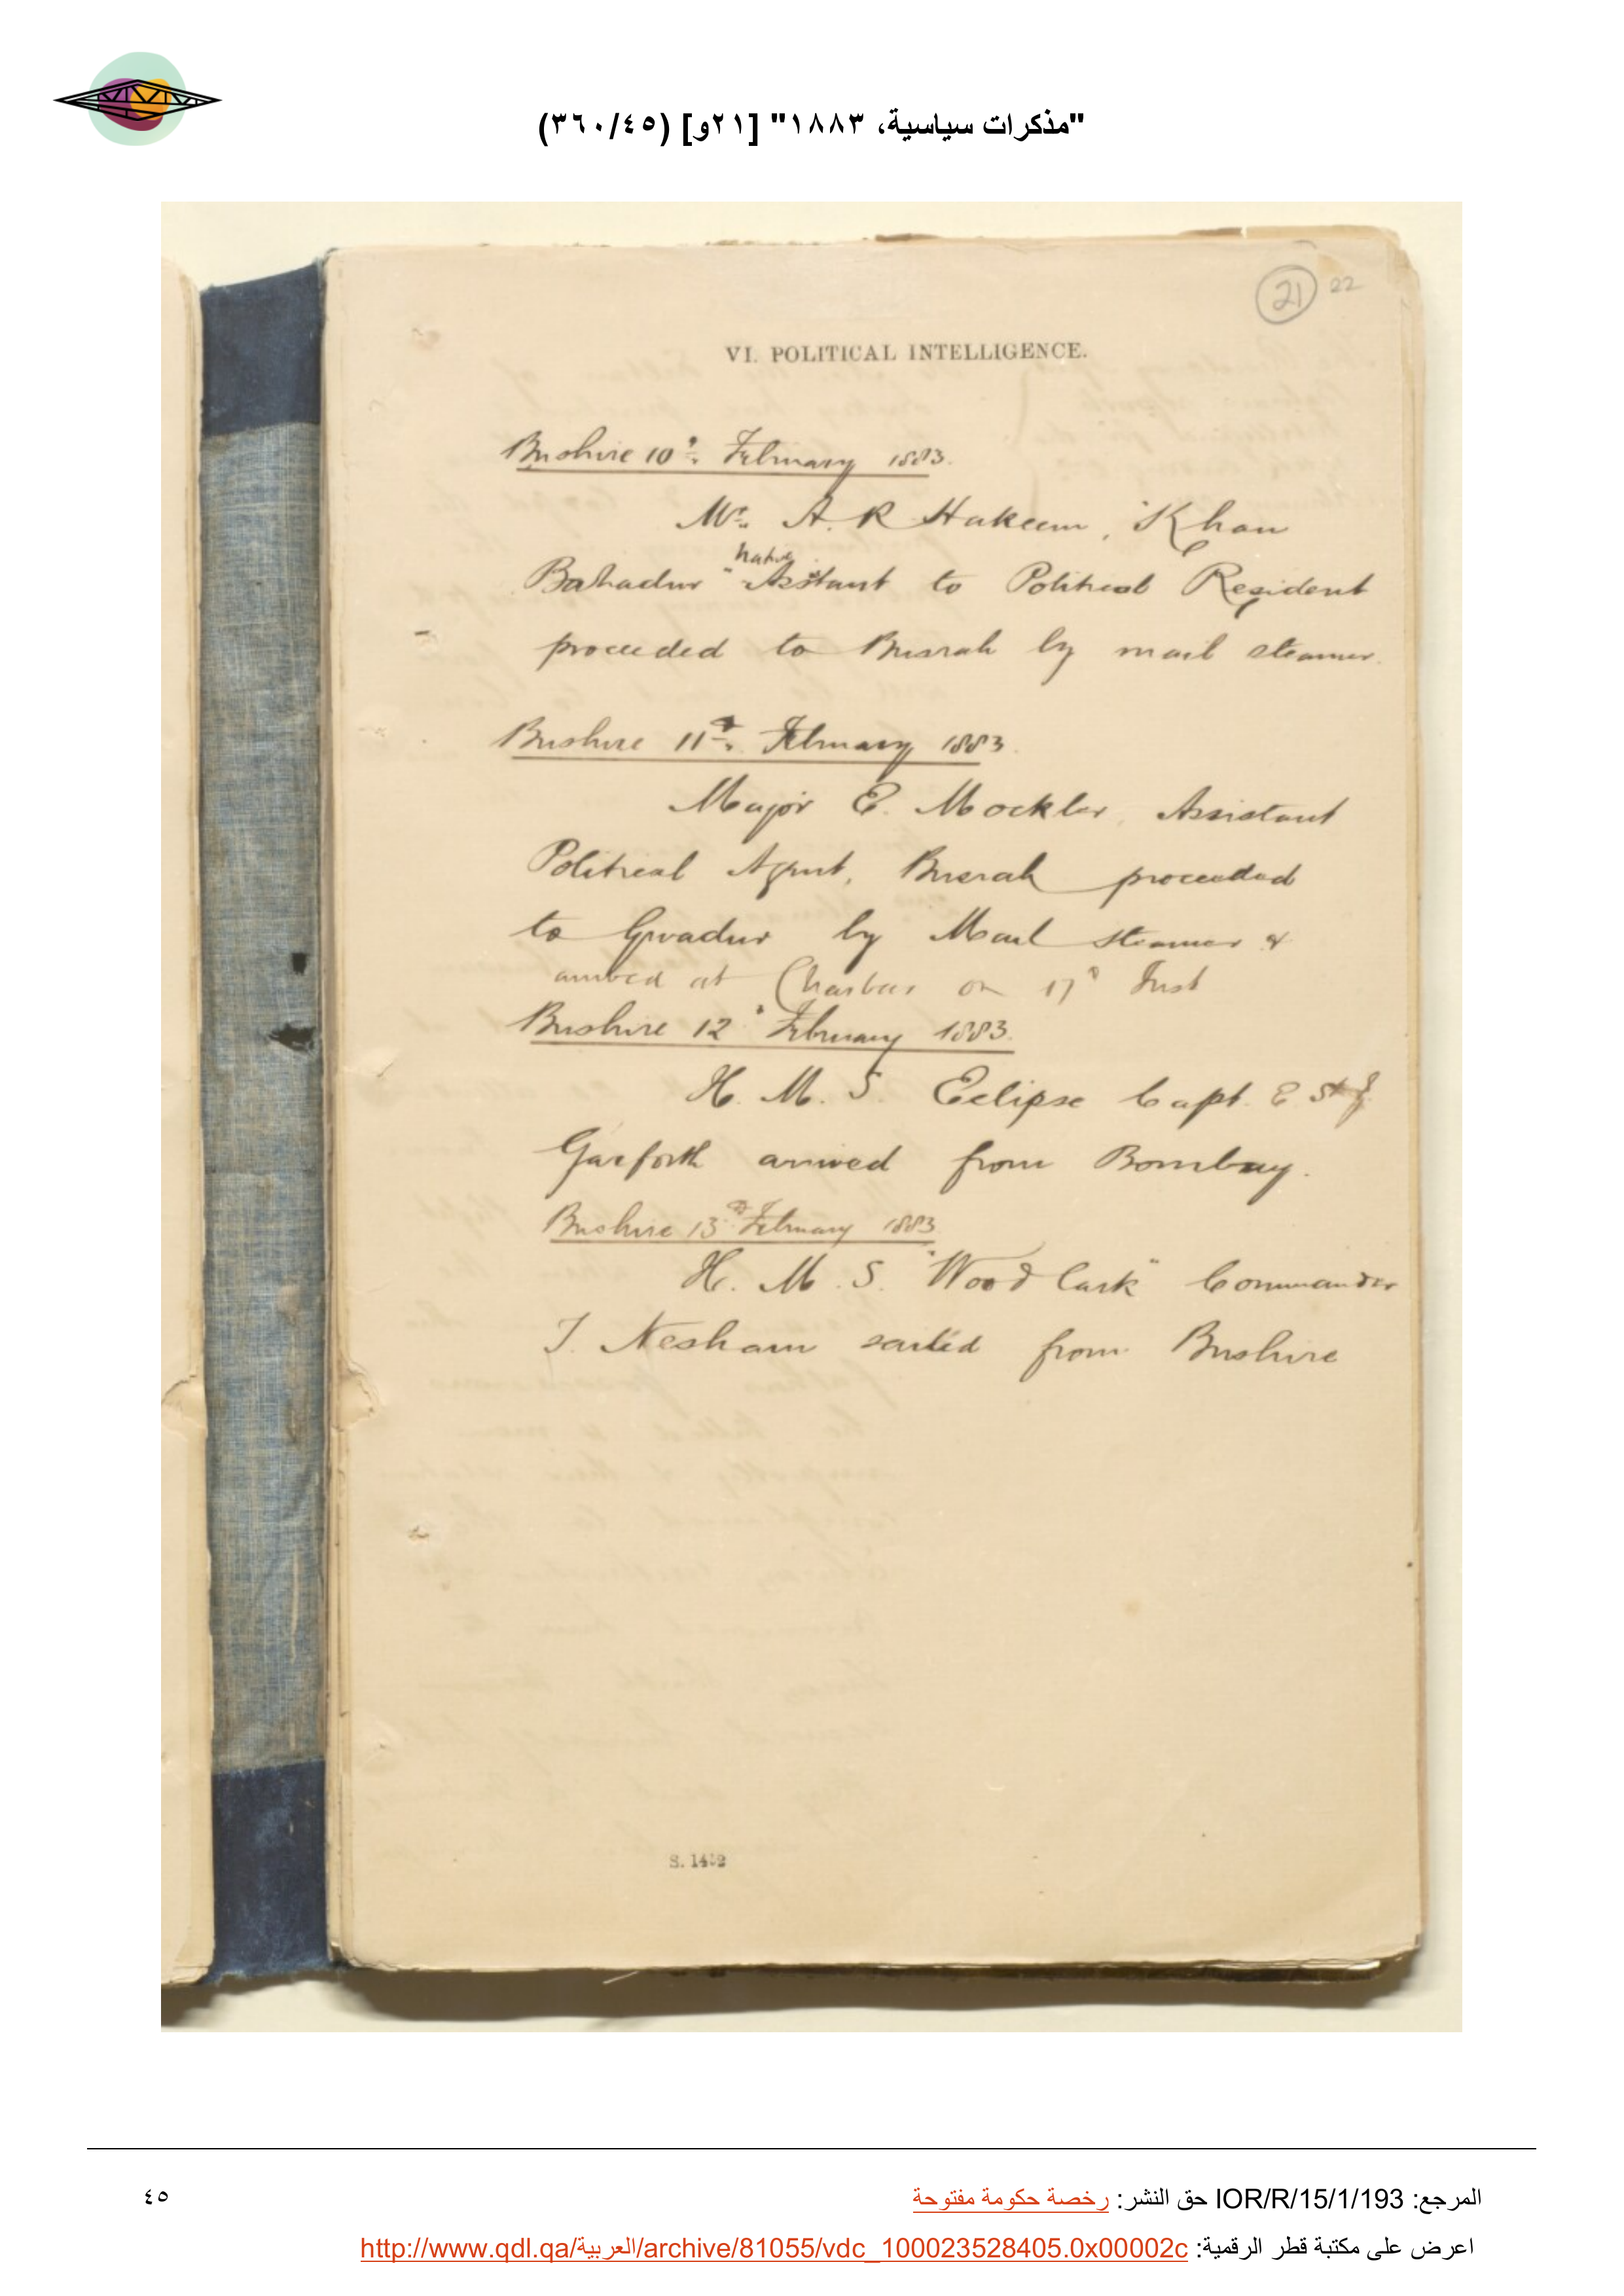 "مذكرات سياسية، ١٨٨٣" [٢١و] (٣٦٠/٤٥)
21 22
VI. POLITICAL INTELLIGENCE.
Bushire 10th February 1883.
Mr. A. R Hakeem, Khan
Native
Bahadur Assistant to Political Resident
proceeded to Busrah by mail steamer.
Bushire 11th February 1883.
Major E. Mockler, Assistant
Political Agent, Busrah proceeded
to Gwadur by Mail steamer &
arrived at Charbar on 17th Inst
Bushire 12th February 1883.
H. M. S. Eclipse Capt. E St J.
Garforth arrived from Bombay.
Bushire 13th February 1883
H. M. S. "Wood lark" Commander
T. Nesham sailed from Bushire
المرجع: IOR/R/15/1/193 حق النشر: رخصة حكومة مفتوحة
٤٥
اعرض على مكتبة قطر الرقمية: http://www.qdl.qa/العربية/archive/81055/vdc_100023528405.0x00002c